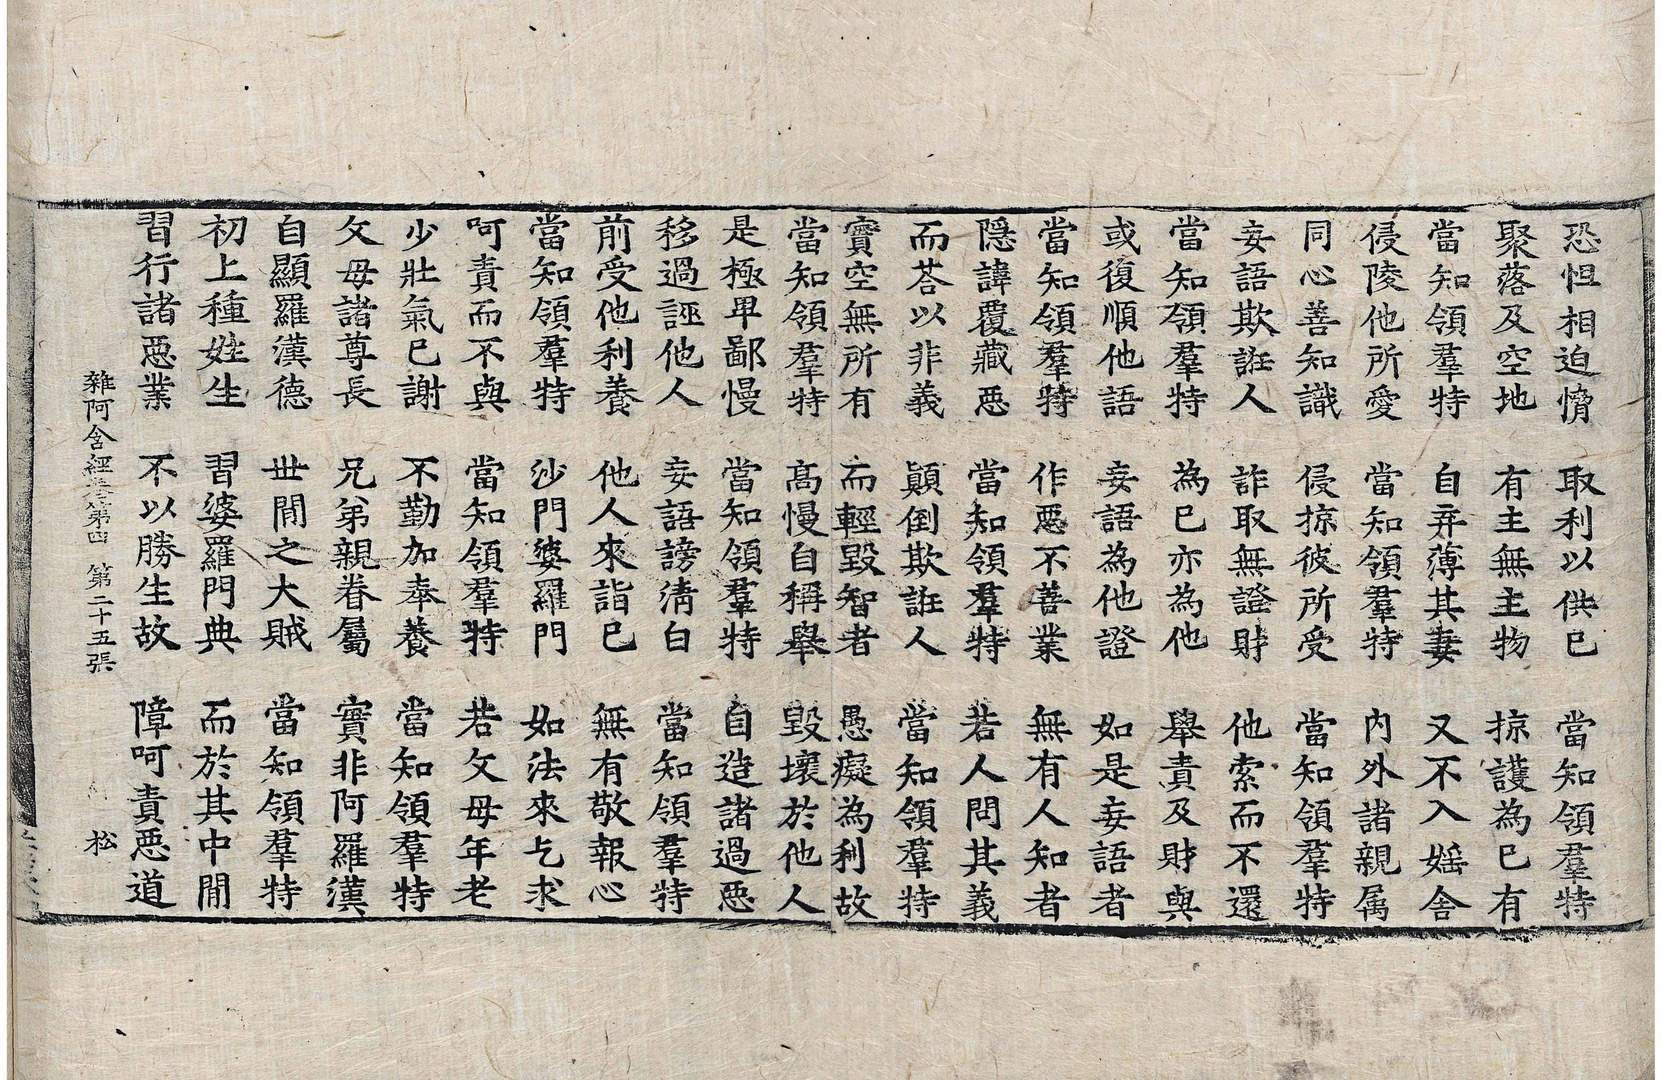 恐怛相迫愶 取利以供已 當知領羣特
聚落及空地 有主無主物 掠護為已有
當知領羣特 自弃薄其妻 又不入婬舍
侵陵他所愛 當知領羣特 內外諸親属
同心善知識 侵掠彼所受 當知領羣特
妄語欺誑人 詐取無證財 他索而不還
當知領羣特 為已亦為他 舉責及財與
或復順他語 妄語為他證 如是妄語者
當知領羣特 作惡不善業 無有人知者
隱諱覆藏惡 當知領羣特 若人問其義
而荅以非義 顛倒欺誑人 當知領羣特
實空無所有 而輕毀智者 愚癡為利故
當知領羣特 高慢自稱舉 毀壞於他人
是極卑鄙慢 當知領羣特 自造諸過惡
移過誣他人 妄語謗清白 當知領羣特
前受他利養 他人來詣已 無有敬報心
當知領羣特 沙門婆羅門 如法來乞求
呵責而不與 當知領羣特 若父母年老
少壯氣已謝 不勤加奉養 當知領羣特
父母諸尊長 兄弟親眷屬 實非阿羅漢
自顯羅漢德 世間之大賊 當知領羣特
初上種姓生 習婆羅門典 而於其中間
習行諸惡業 不以勝生故 障呵責惡道
雜阿含經卷第四 第二十五張 松